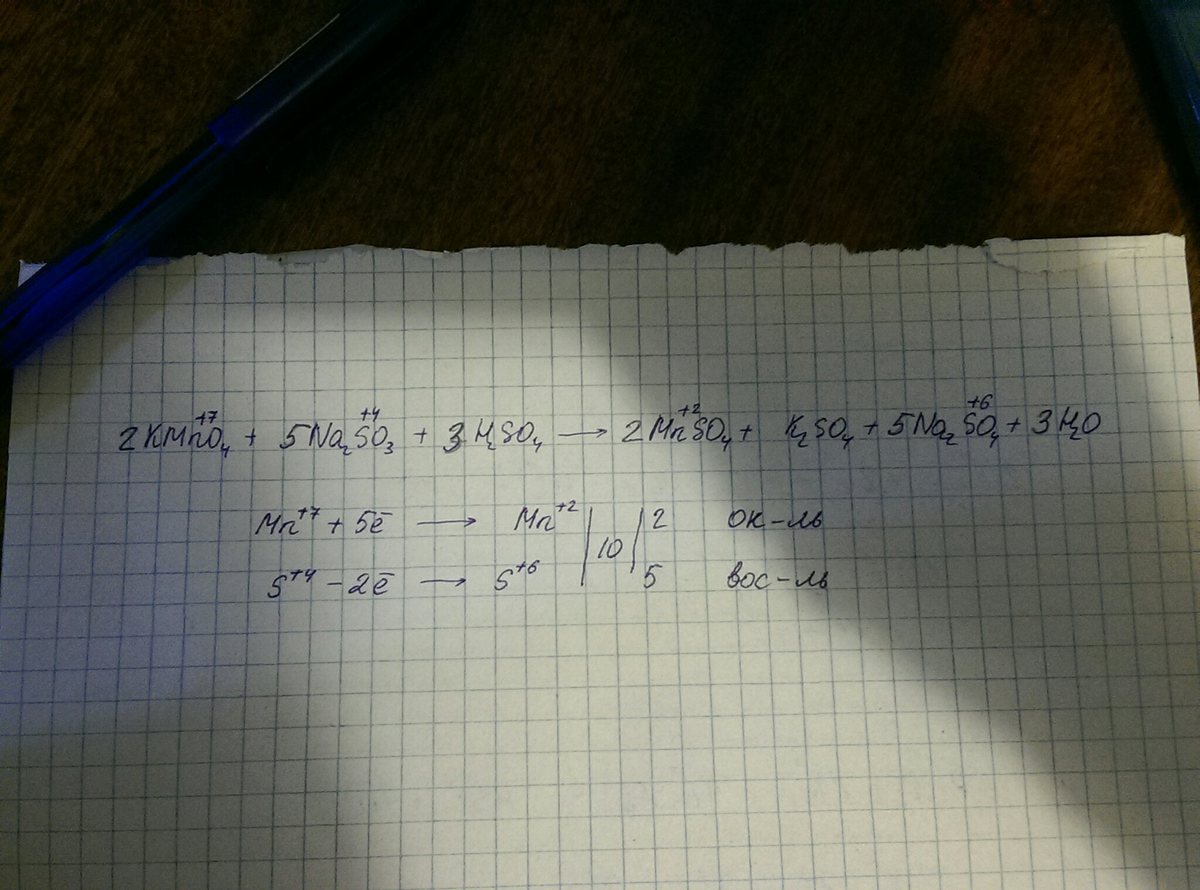 2KMn⁺⁷O₄ + 5Na₂S⁺⁴O₃ + 3H₂SO₄ → 2Mn⁺²SO₄ + K₂SO₄ + 5Na₂S⁺⁶O₄ + 3H₂O
Mn⁺⁷ + 5ē → Mn⁺² | 10 | 2 ок-ль
S⁺⁴ - 2ē → S⁺⁶ | | 5 вос-ль